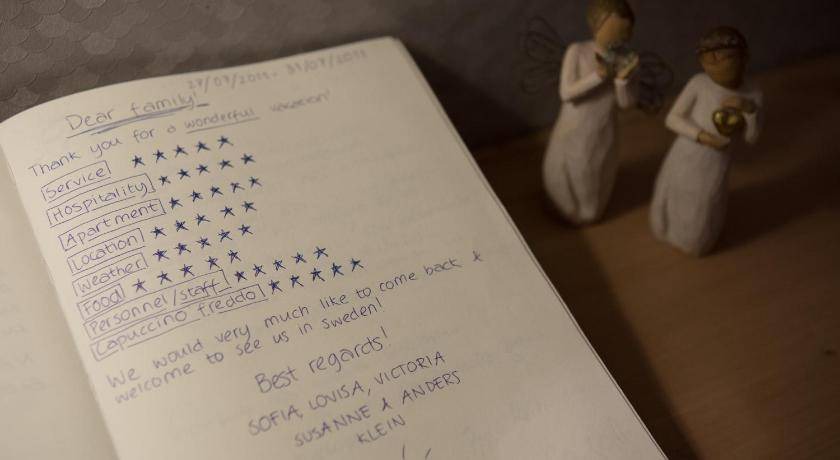 27/07/2011 - 31/07/2011
Dear family!
Thank you for a wonderful vacation!
Service ★ ★ ★ ★ ★
Hospitality ★ ★ ★ ★ ★
Apartment ★ ★ ★ ★ ★
Location ★ ★ ★ ★ ★
Weather ★ ★ ★ ★ ★
Food ★ ★ ★ ★ ★
Personnel/staff ★ ★ ★ ★ ★
Capuccino freddo ★ ★ ★ ★ ★
We would very much like to come back &
welcome to see us in sweden!
Best regards!
SOFIA, LOVISA, VICTORIA
SUSANNE & ANDERS
KLEIN